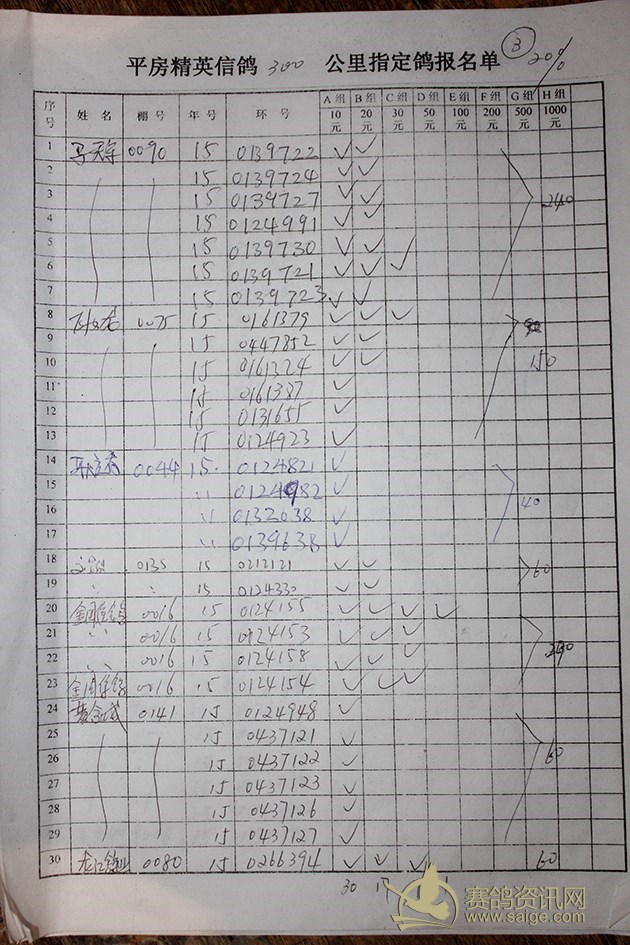 3
20%
平房精英信鸽 300 公里指定鸽报名单
序号 姓名 棚号 年号 环号 A组10元 B组20元 C组30元 D组50元 E组100元 F组200元 G组500元 H组1000元
1 0090 15 0139722 ✓ ✓
2 15 0139724 ✓ ✓
3 15 0139727 ✓ ✓
4 15 0124991 ✓ ✓
5 15 0139730 ✓ ✓
6 15 0139721 ✓ ✓ ✓
7 15 0139723 ✓ ✓
8 0075 15 0161379 ✓ ✓ ✓
9 15 0447852 ✓ ✓
10 15 0161324 ✓ ✓ 150
11 15 0161387 ✓
12 15 0131655 ✓
13 15 0124923 ✓
14 0044 15 0124821 ✓
15 〃 0124982 ✓
16 〃 0132038 ✓ 40
17 〃 0139638 ✓
18 0135 15 0212121 ✓ ✓ 60
19 〃 〃 15 0124330 ✓ ✓
20 0016 15 0124155 ✓ ✓ ✓ ✓
21 〃 0016 15 0124153 ✓ ✓ ✓
22 〃 0016 15 0124158 ✓ ✓ ✓
23 0016 15 0124154 ✓ ✓ ✓
24 0141 15 0124948 ✓
25 15 0437121 ✓
26 15 0437122 ✓ 60
27 15 0437123 ✓
28 15 0437126 ✓
29 15 0437127 ✓
30 0080 15 0266394 ✓ ✓ ✓ 60
30 17
赛鸽资讯网
www.saige.com